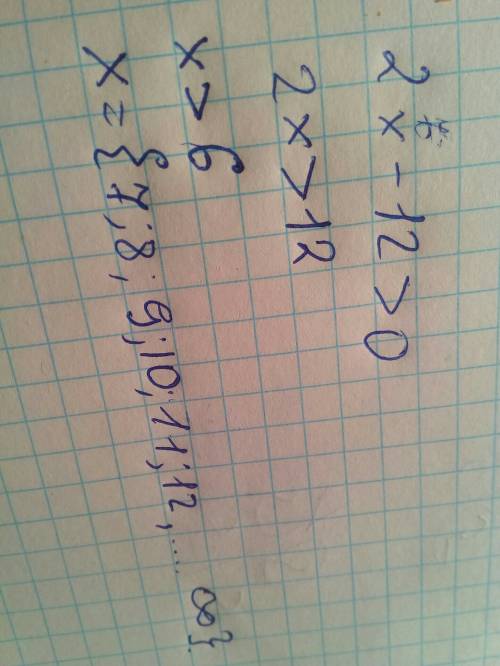 2x-12>0
2x>12
x>6
x={7;8;9;10;11;12,..... ∞}